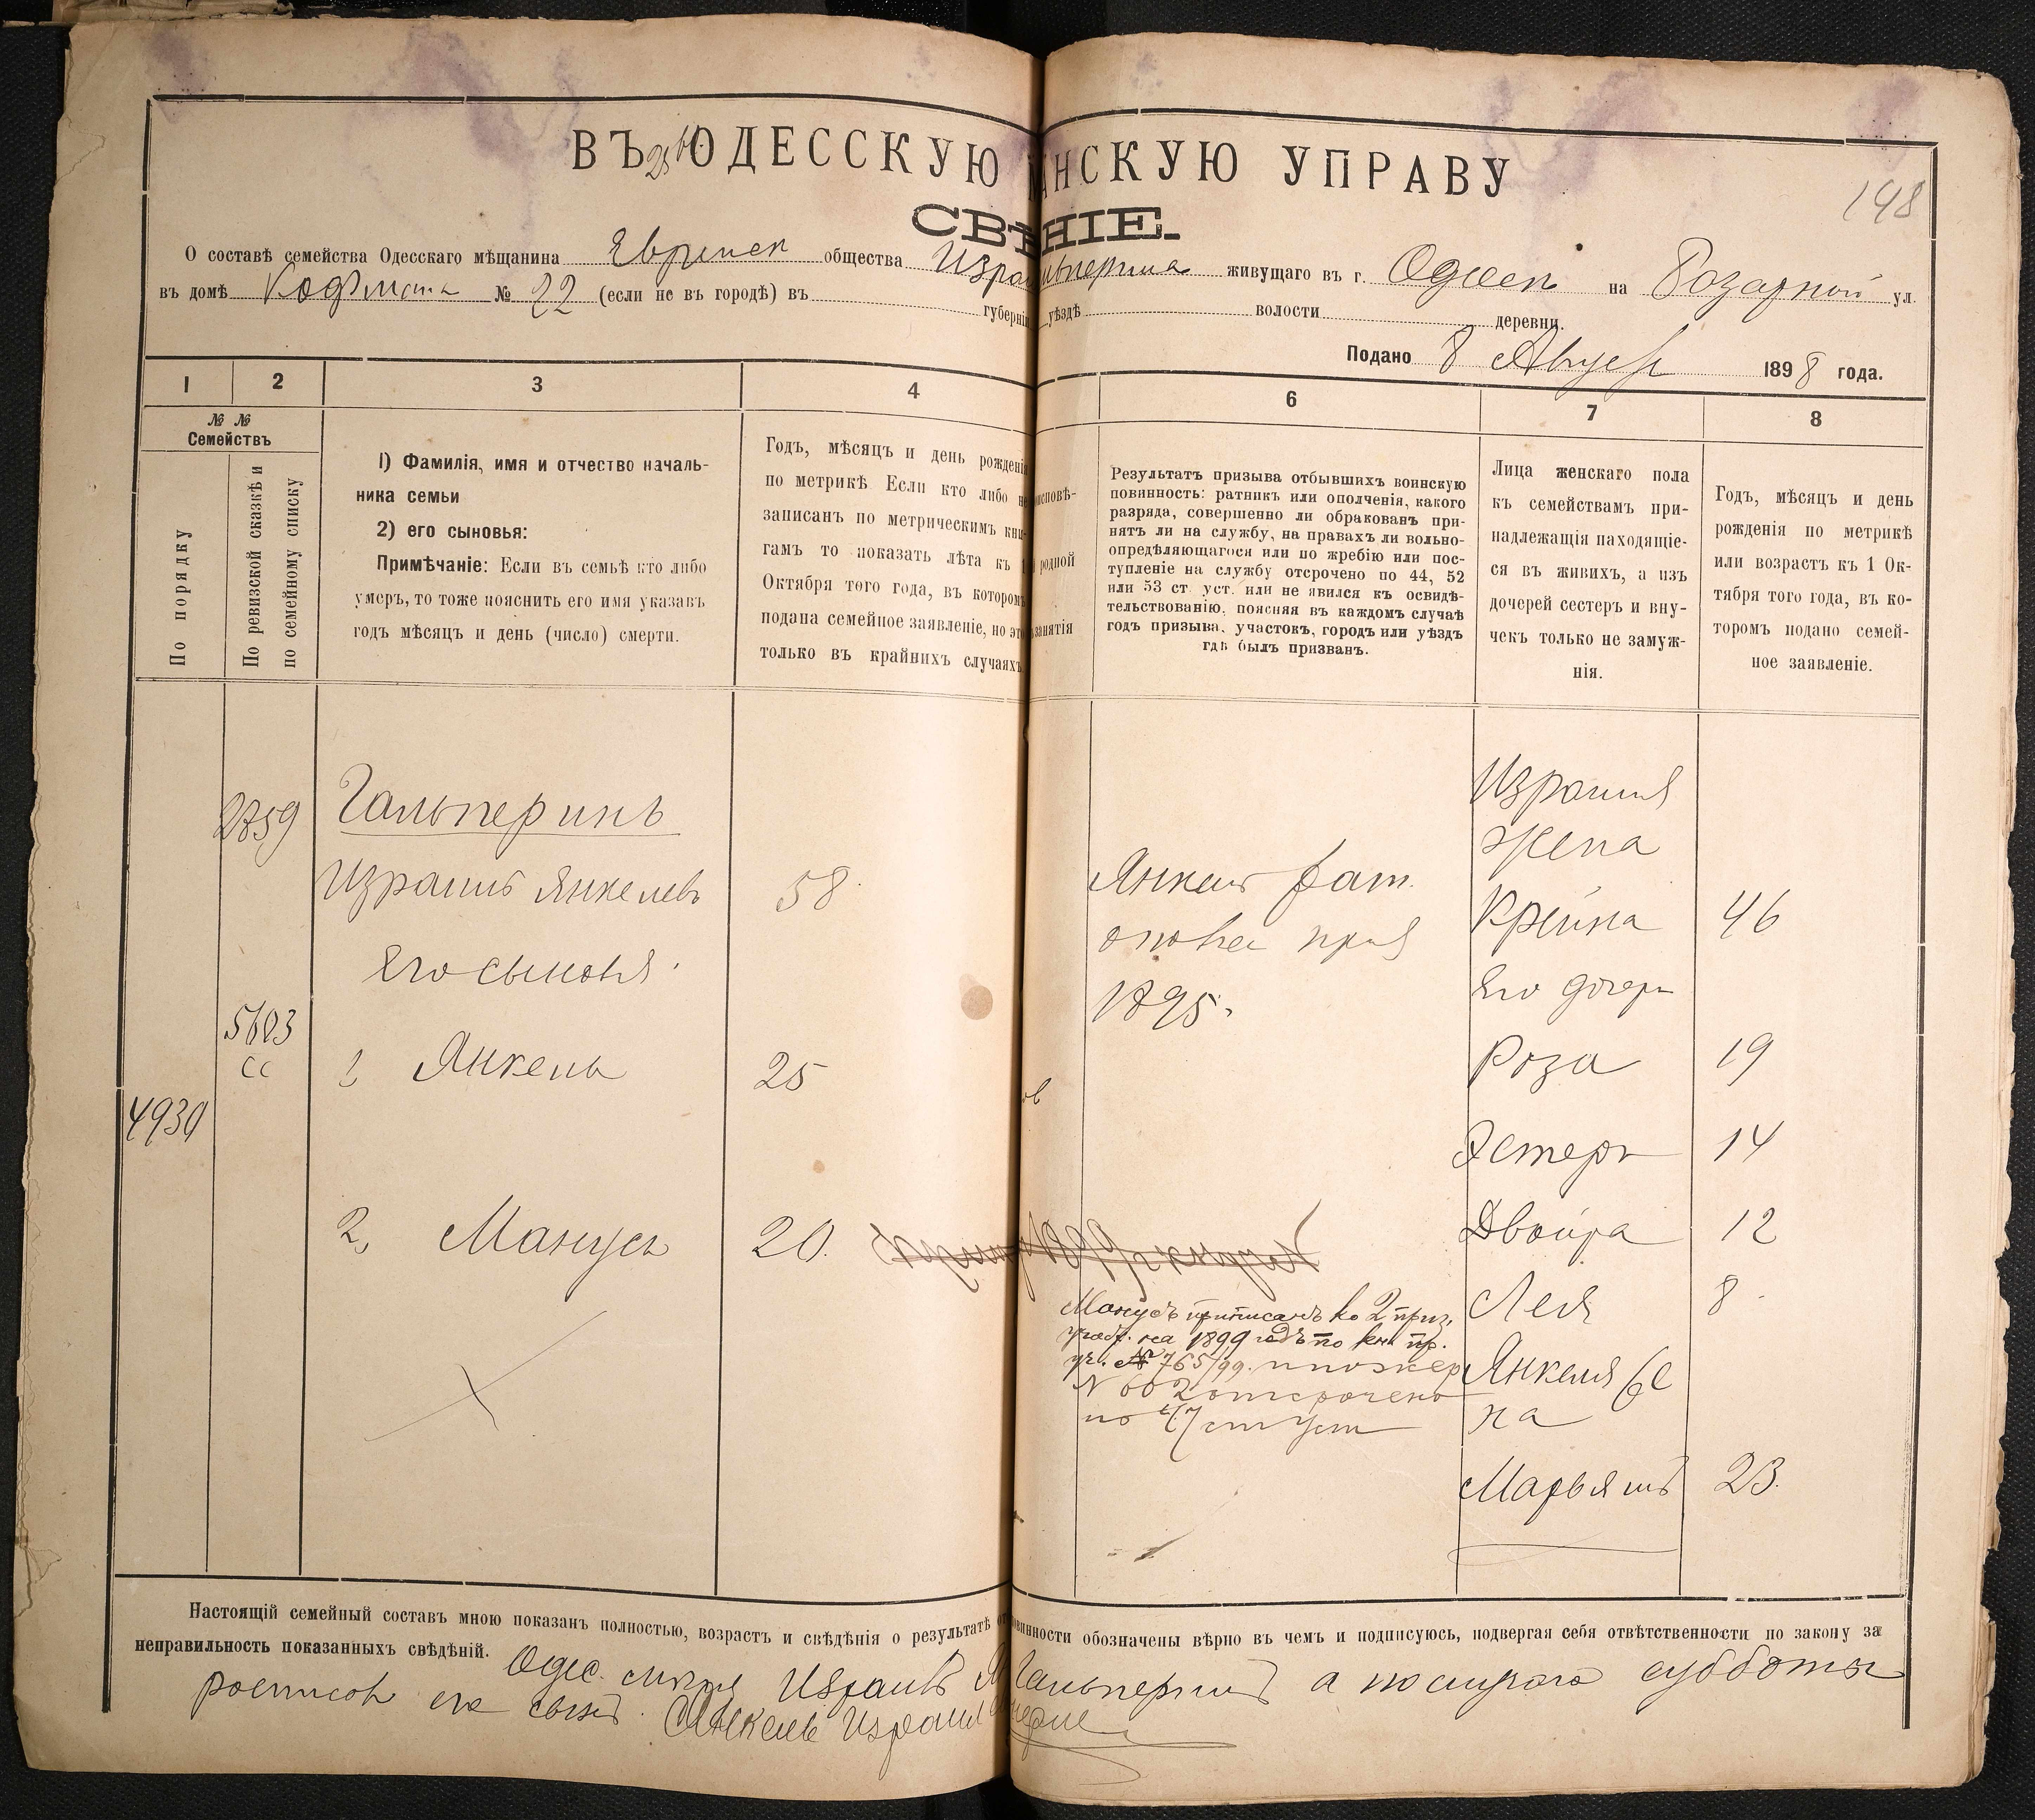 ВЪ ОДЕССКУЮ НСКУЮ УПРАВУ
198
СВѢ НІЕ.
О составѣ семейства Одесскаго мѣщанина Еврейск общества Израи живущаго въ г. Одессѣ на Базарной ул.
въ домѣ Кофмана № 22 (если не въ городѣ) въ губерні уѣздѣ волости деревни.
Подано 8 Август 1898 года.
1 2 3 4 6 7 8
№ №
Семействъ
По порядку
По ревизской сказкѣ и
по семейному списку
1) Фамилія, имя и отчество началь-
ника семьи
2) его сыновья:
Примѣчаніе: Если въ семьѣ кто либо
умеръ, то тоже пояснить его имя указавъ
годъ мѣсяцъ и день (число) смерти.
Годъ, мѣсяцъ и день рожденія
по метрикѣ Если кто либо не
записанъ по метрическимъ кни-
гамъ то показать лѣта къ 1
Октября того года, въ которомъ
подана семейное заявленіе, но это
только въ крайнихъ случаяхъ
исповѣ-
родной
занятія
Результатъ призыва отбывшихъ воинскую
повинность: ратникъ или ополченія, какого
разряда, совершенно ли обракованъ при-
нятъ ли на службу, на правахъ ли вольно-
опредѣляющагося или по жребію или пос-
тупленіе на службу отсрочено по 44, 52
или 53 ст. уст. или не явился къ освидѣ-
тельствованію, поясняя въ каждомъ случаѣ
годъ призыва, участокъ, городъ или уѣздъ
гдѣ былъ призванъ.
Лица женскаго пола
къ семействамъ при-
надлежащія находящіе-
ся въ живихъ, а изъ
дочерей сестеръ и вну-
чекъ только не замуж-
нія.
Годъ, мѣсяцъ и день
рожденія по метрикѣ
или возрастъ къ 1 Ок-
тября того года, въ ко-
торомъ подано семей-
ное заявленіе.
2759 Гальперинъ
Израиль Янкелевъ 58
Его сыновья
5603
сс
1, Янкель 25
4930
2, Манусъ 20.
Янкель рат.
1895.
Манусъ приписанъ ко 2 приз.
участ. на 1899 годъ по кн. пр.
уч. № 765/99. по жер
N 602 отсрочено
по 47 ст уст
Израиля
жена
Крейна 46
Его дочери
Роза 19
Эстеръ 14
Двойра 12
Лея 8
Янкеля же
на
Марьямъ 23.
Настоящій семейный составъ мною показанъ полностью, возрастъ и свѣдѣнія о результатѣ от овинности обозначены вѣрно въ чемъ и подписуюсь, подвергая себя отвѣтственности по закону за
неправильность показанныхъ свѣдѣній.
Одес. Израиль Гальперинъ а по случаю субботы
росписов его сынъ. Янкель Израил